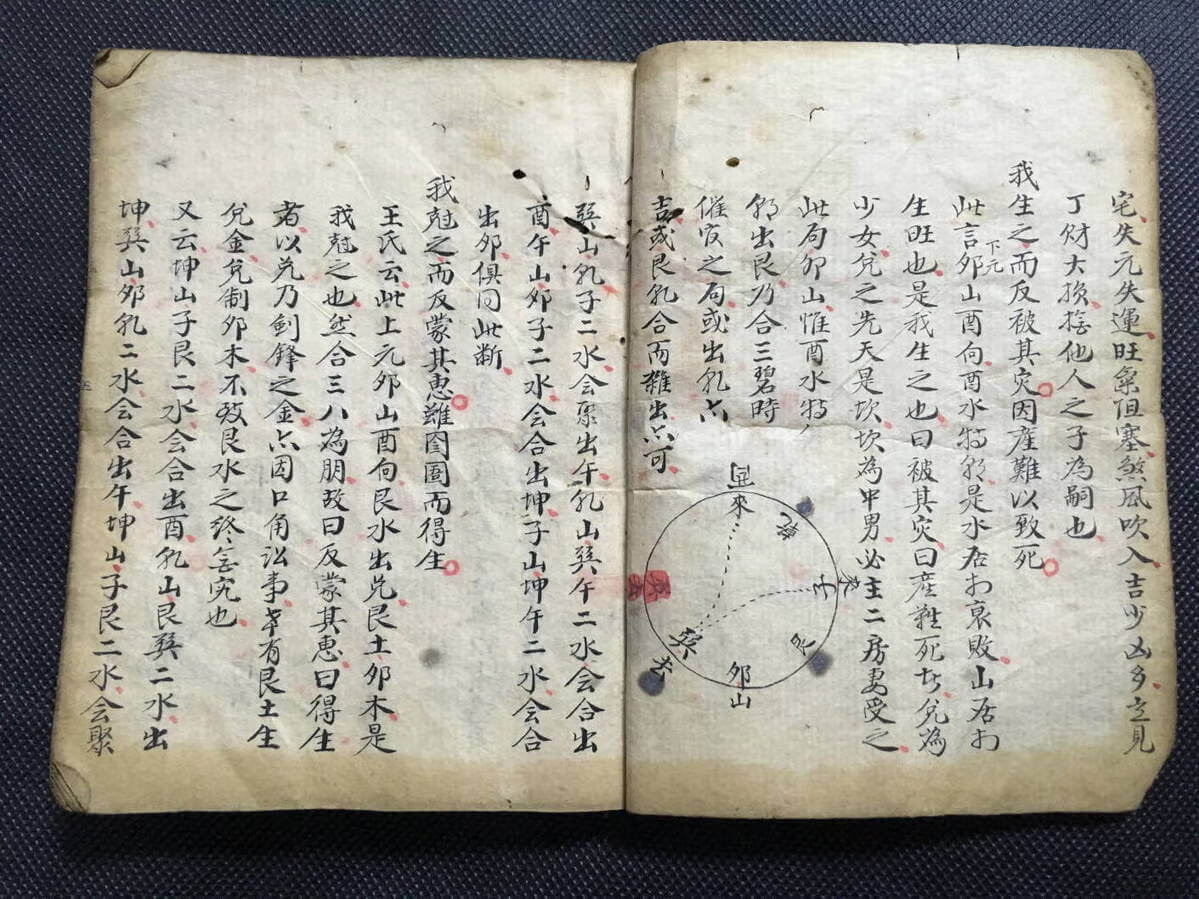 宅失元失運旺氣阻塞煞風吹入吉少凶多立見
丁财大损撫他人之子為嗣也
我生之而反被其灾因産難以致死
此言下元卯山酉向酉水特朝是水居於衰敗山居於
生旺也是我生之也曰被其灾曰産難死者兌為
少女兌之先天是坎坎為中男必主二房妻受之
此局卯山惟酉水特
朝出艮乃合三碧時
催官之局或出乹六
吉或艮乹合而雜出亦可
來
乹
壬
亥
艮
卯山
巽
去
巽山乹子二水会聚出午乹山巽午二水会合出
酉午山卯子二水会合出坤子山坤午二水会合
出卯俱同此断
我尅之而反蒙其恵難圄圄而得生
王氏云此上元卯山酉向艮水出兌艮土卯木是
我尅之也然合三八為朋故曰反蒙其恵曰得生
者以兌乃剣鋒之金亦因口角訟事幸有艮土生
兌金兌制卯木不致艮水之終無究也
又云坤山子艮二水会合出酉乹山艮巽二水出
坤巽山卯乹二水会合出午坤山子艮二水会聚